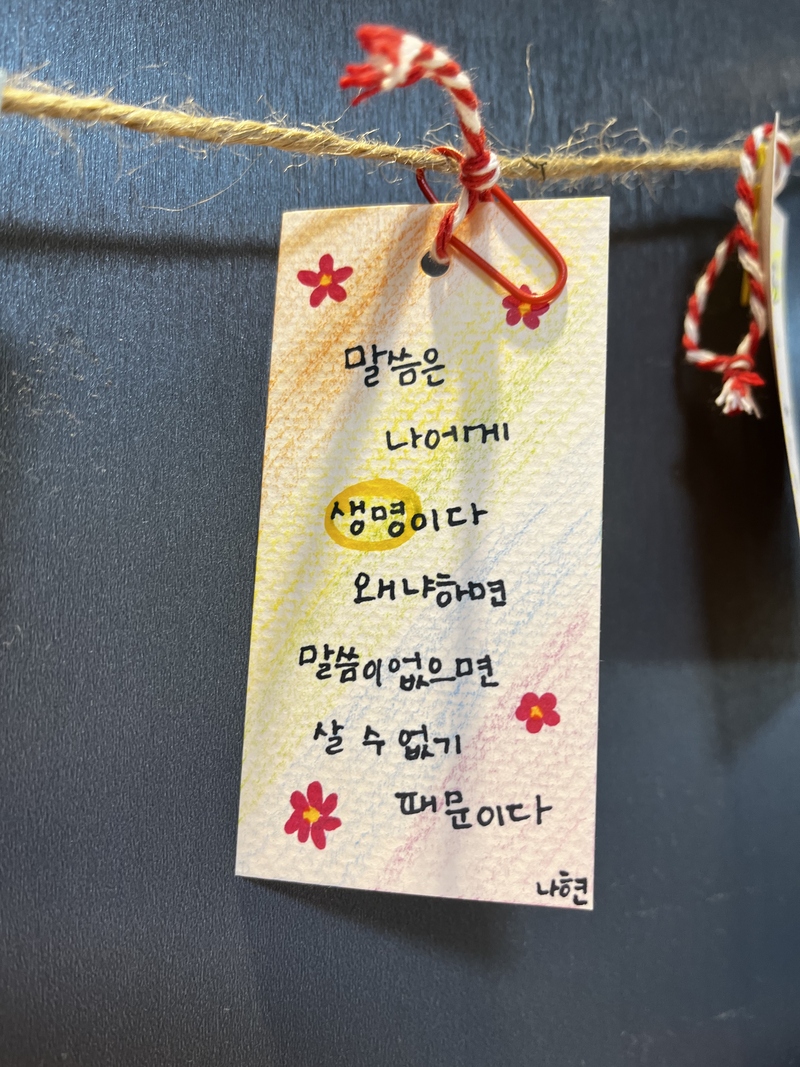 말씀은
나에게
생명이다
왜냐하면
말씀이 없으면
살 수 없기
때문이다
나현